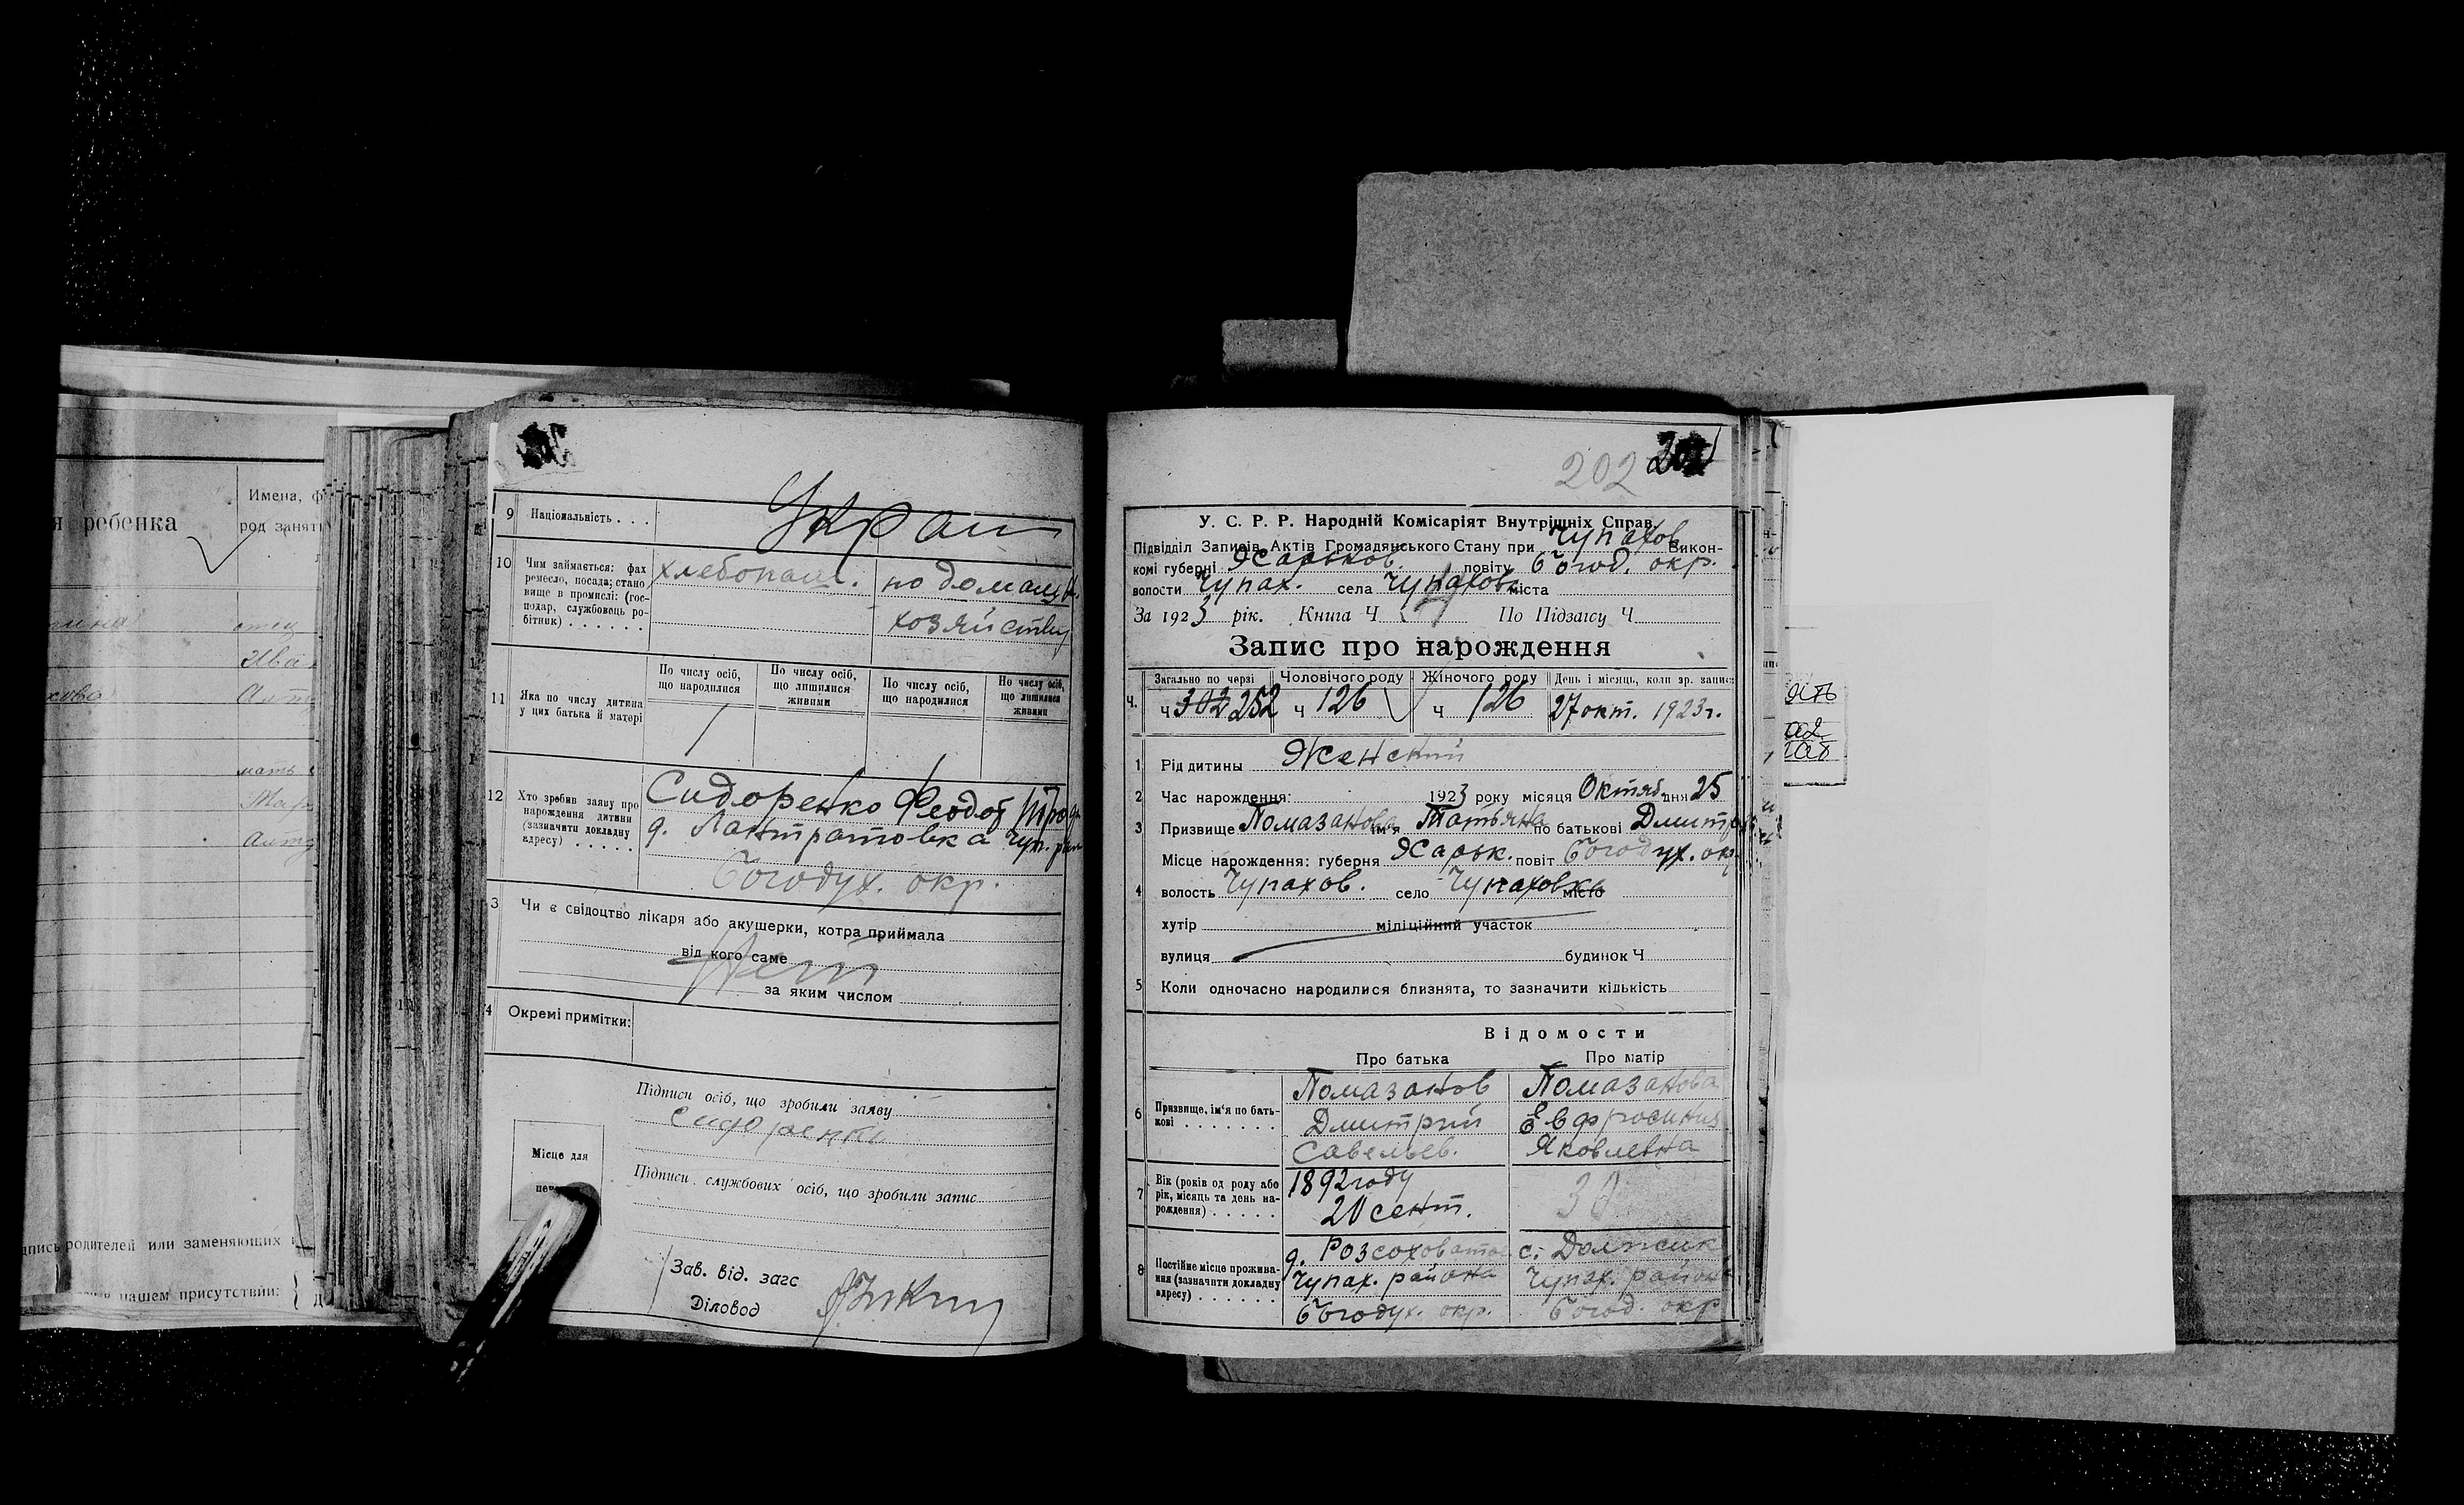 я ребенка
Имена, ф
род заняти
отец
Ива
мать
Мар
дпись родителей или заменяющих
в нашем присутствии:
9 Національність . . .
Укра
10 Чим займається: фах
ремесло, посада; стано
вище в промислі: (гос-
подар, службовець ро-
бітник) . . . . . .
хлебопаш.
по домашн.
хозяйству
11 Яка по числу дитина
у цих батька й матері
По числу осіб,
що народилися
По числу осіб,
що лишилися
живими
По числу осіб,
що народилися
По числу осіб,
що лишилися
живими
1
1
12 Хто зробив заяву про
нарождення дитини
(зазначити докладну
адресу) . . . . .
Сидоренко Феодот
д. Лантратовка Чуп. рай
Богодух. окр.
3 Чи є свідоцтво лікаря або акушерки, котра приймала
від кого саме
Нет
за яким числом
4 Окремі примітки:
Підписи осіб, що зробили заяву
Сидоренко
Місце для
печ
Підписи службових осіб, що зробили запис
Зав. від. загс
Діловод
202 201
У. С. Р. Р. Народній Комісаріят Внутрішніх Справ.
Підвідділ Записів Актів Громадянського Стану при Чупахов Викон-
комі губерні Харьков. повіту Богод. окр.
волости Чупах. села Чупаховк міста
За 1923 рік. Книга Ч 4 По Підзагсу Ч
Запис про нарождення
Загально по черзі
Чоловічого роду
Жіночого роду
День і місяць, коли зр. запис
Ч.
Ч 302 252
Ч 126
Ч 126
27 окт. 1923 г.
1 Рід дитини Женский
2 Час нарождення: 1923 року місяця Октяб. дня 25
3 Призвище Помазанова ім'я Татьяна по батькові Дмитр
4 Місце нарождення: губерня Харьк. повіт Богодух. окр
волость Чупахов. село Чупаховка місто
хутір міліційний участок
вулиця будинок Ч
5 Коли одночасно народилися близнята, то зазначити кількість
Відомости
Про батька
Про матір
6 Призвище, ім'я по бать-
кові . . . . . . .
Помазанов
Дмитрий
Савельев.
Помазанова
Евфросиния
Яковлевна
7 Вік (років од роду або
рік, місяць та день на-
рождення) . . . . .
1892 году
20 сент.
30
8 Постійне місце прожива-
ння (зазначити докладну
адресу) . . . . . .
д. Розсоховато
Чупах. района
Богодух. окр.
с. Должик
Чупах. район
Богод. окр